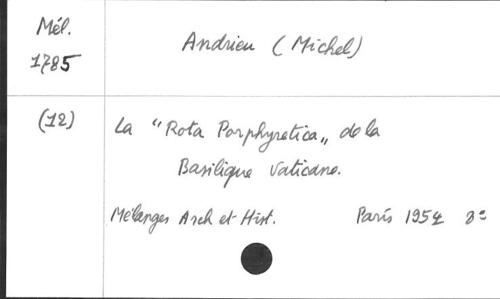 Mél.
1785
Andrieu (Michel)
(12)
La "Rota Porphyretica" de la
Basilique Vaticane.
Mélanges Arch et Hist. Paris 1954 8º